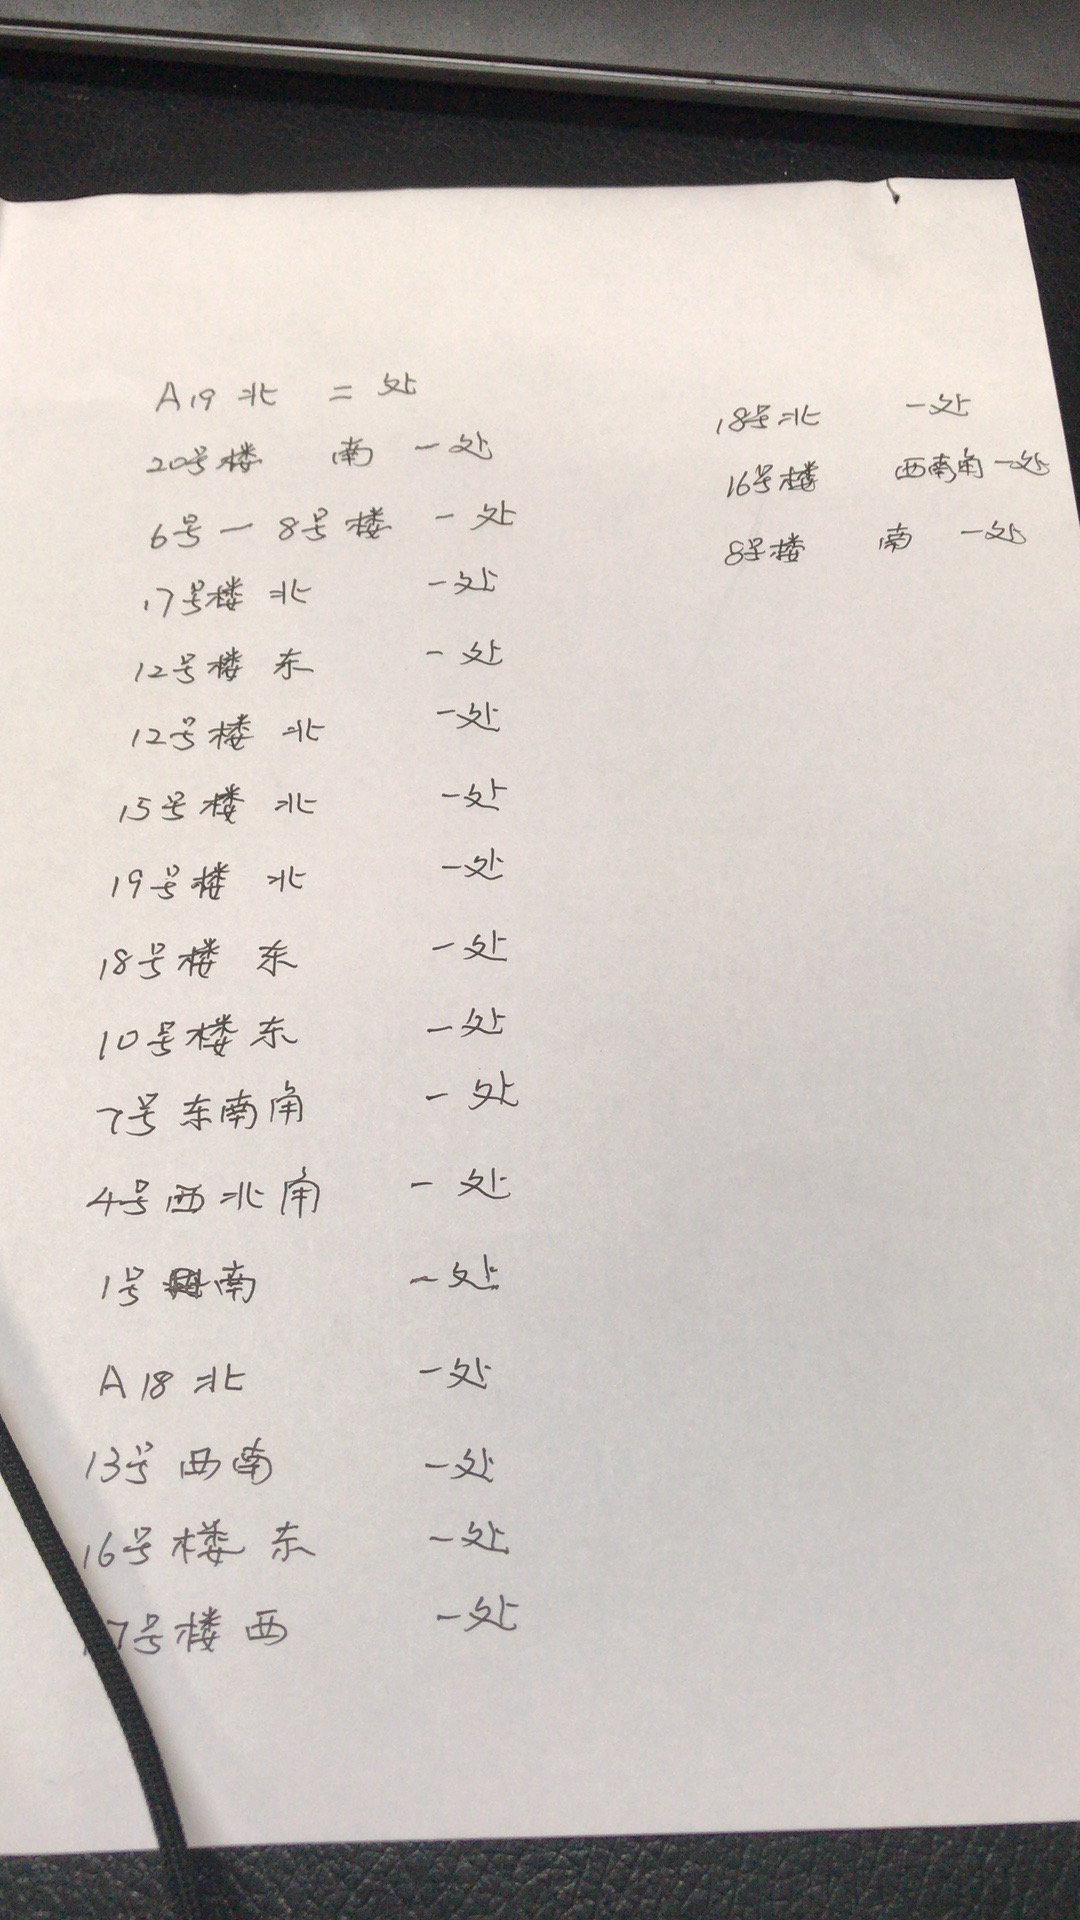 A19北 二处
20号楼 南 一处
6号一8号楼 一处
17号楼北 一处
12号楼东 一处
12号楼北 一处
15号楼北 一处
19号楼北 一处
18号楼东 一处
10号楼东 一处
7号东南角 一处
4号西北角 一处
1号南 一处
A18北 一处
13号西南 一处
16号楼东 一处
17号楼西 一处
18号北 一处
16号楼 西南角一处
8号楼 南 一处